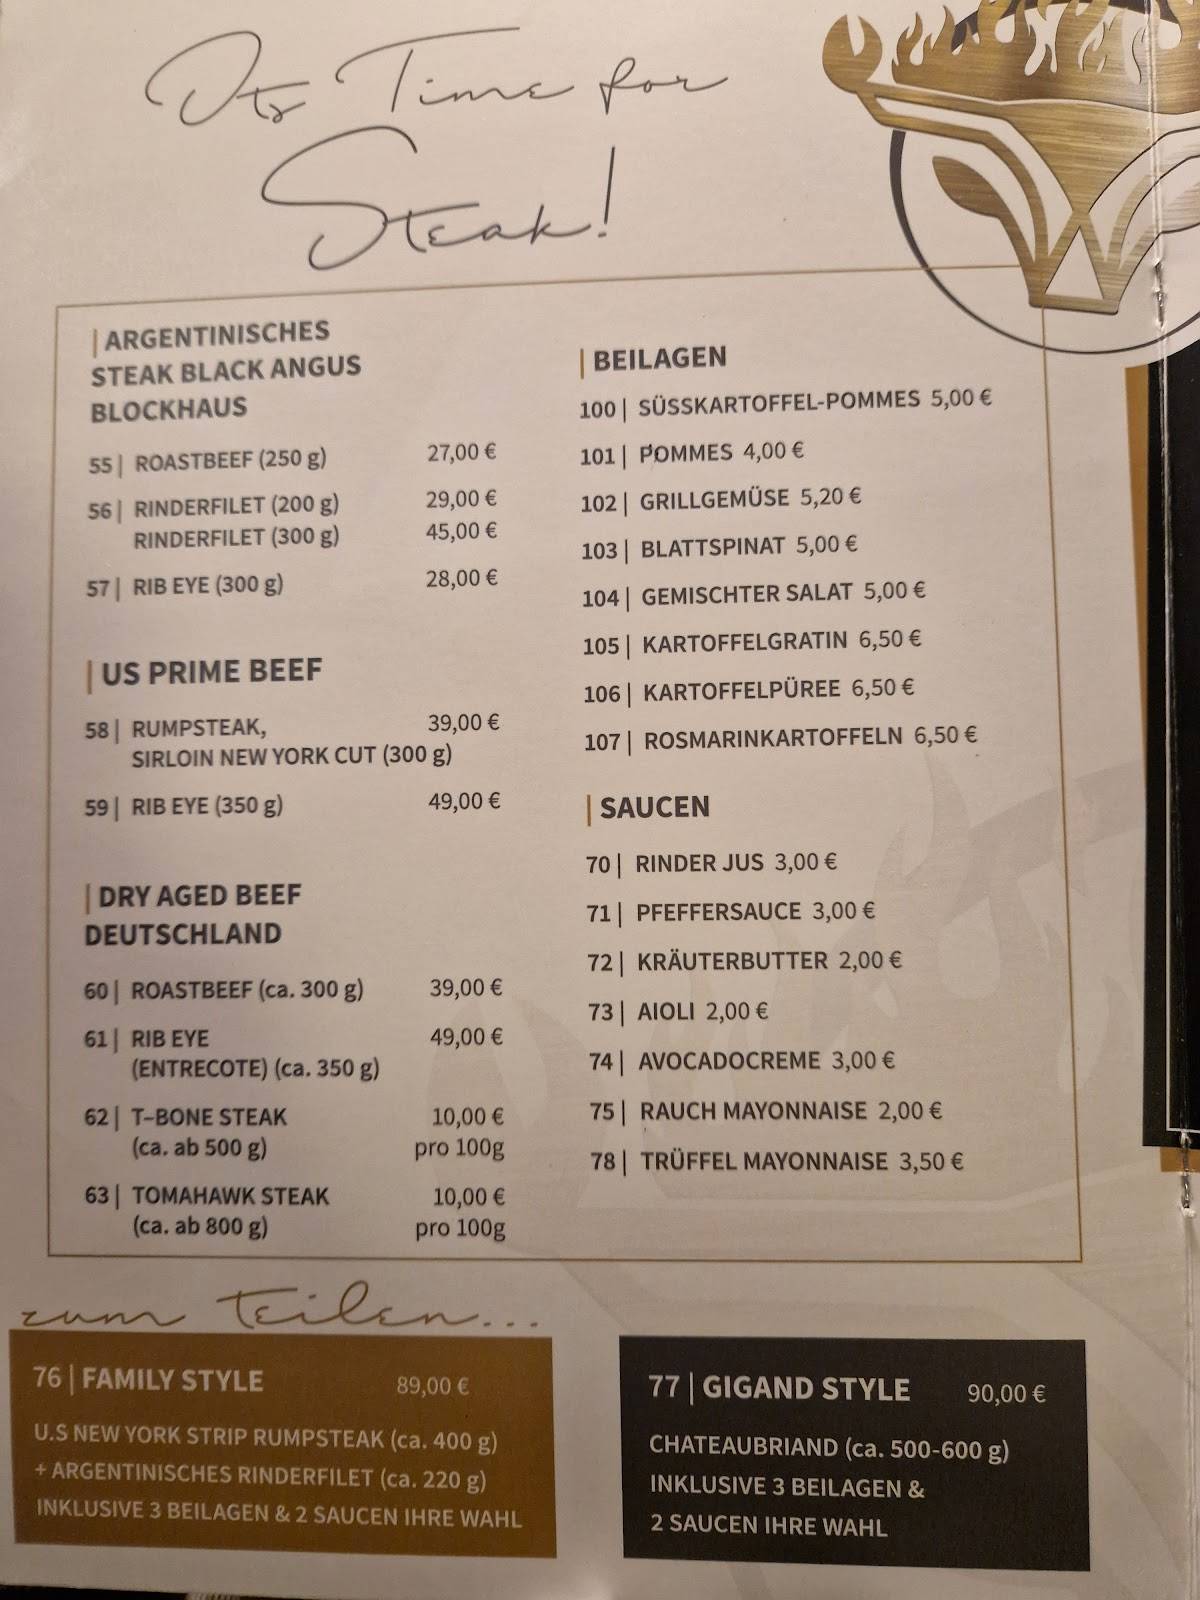 Its Time for
Steak!
| ARGENTINISCHES
STEAK BLACK ANGUS
BLOCKHAUS
55 | ROASTBEEF (250 g) 27,00 €
56 | RINDERFILET (200 g) 29,00 €
RINDERFILET (300 g) 45,00 €
57 | RIB EYE (300 g) 28,00 €
| US PRIME BEEF
58 | RUMPSTEAK, 39,00 €
SIRLOIN NEW YORK CUT (300 g)
59 | RIB EYE (350 g) 49,00 €
| DRY AGED BEEF
DEUTSCHLAND
60 | ROASTBEEF (ca. 300 g) 39,00 €
61 | RIB EYE 49,00 €
(ENTRECOTE) (ca. 350 g)
62 | T-BONE STEAK 10,00 €
(ca. ab 500 g) pro 100g
63 | TOMAHAWK STEAK 10,00 €
(ca. ab 800 g) pro 100g
| BEILAGEN
100 | SÜSSKARTOFFEL-POMMES 5,00 €
101 | POMMES 4,00 €
102 | GRILLGEMÜSE 5,20 €
103 | BLATTSPINAT 5,00 €
104 | GEMISCHTER SALAT 5,00 €
105 | KARTOFFELGRATIN 6,50 €
106 | KARTOFFELPÜREE 6,50 €
107 | ROSMARINKARTOFFELN 6,50 €
| SAUCEN
70 | RINDER JUS 3,00 €
71 | PFEFFERSAUCE 3,00 €
72 | KRÄUTERBUTTER 2,00 €
73 | AIOLI 2,00 €
74 | AVOCADOCREME 3,00 €
75 | RAUCH MAYONNAISE 2,00 €
78 | TRÜFFEL MAYONNAISE 3,50 €
zum teilen...
76 | FAMILY STYLE 89,00 €
U.S NEW YORK STRIP RUMPSTEAK (ca. 400 g)
+ ARGENTINISCHES RINDERFILET (ca. 220 g)
INKLUSIVE 3 BEILAGEN & 2 SAUCEN IHRE WAHL
77 | GIGAND STYLE 90,00 €
CHATEAUBRIAND (ca. 500-600 g)
INKLUSIVE 3 BEILAGEN &
2 SAUCEN IHRE WAHL